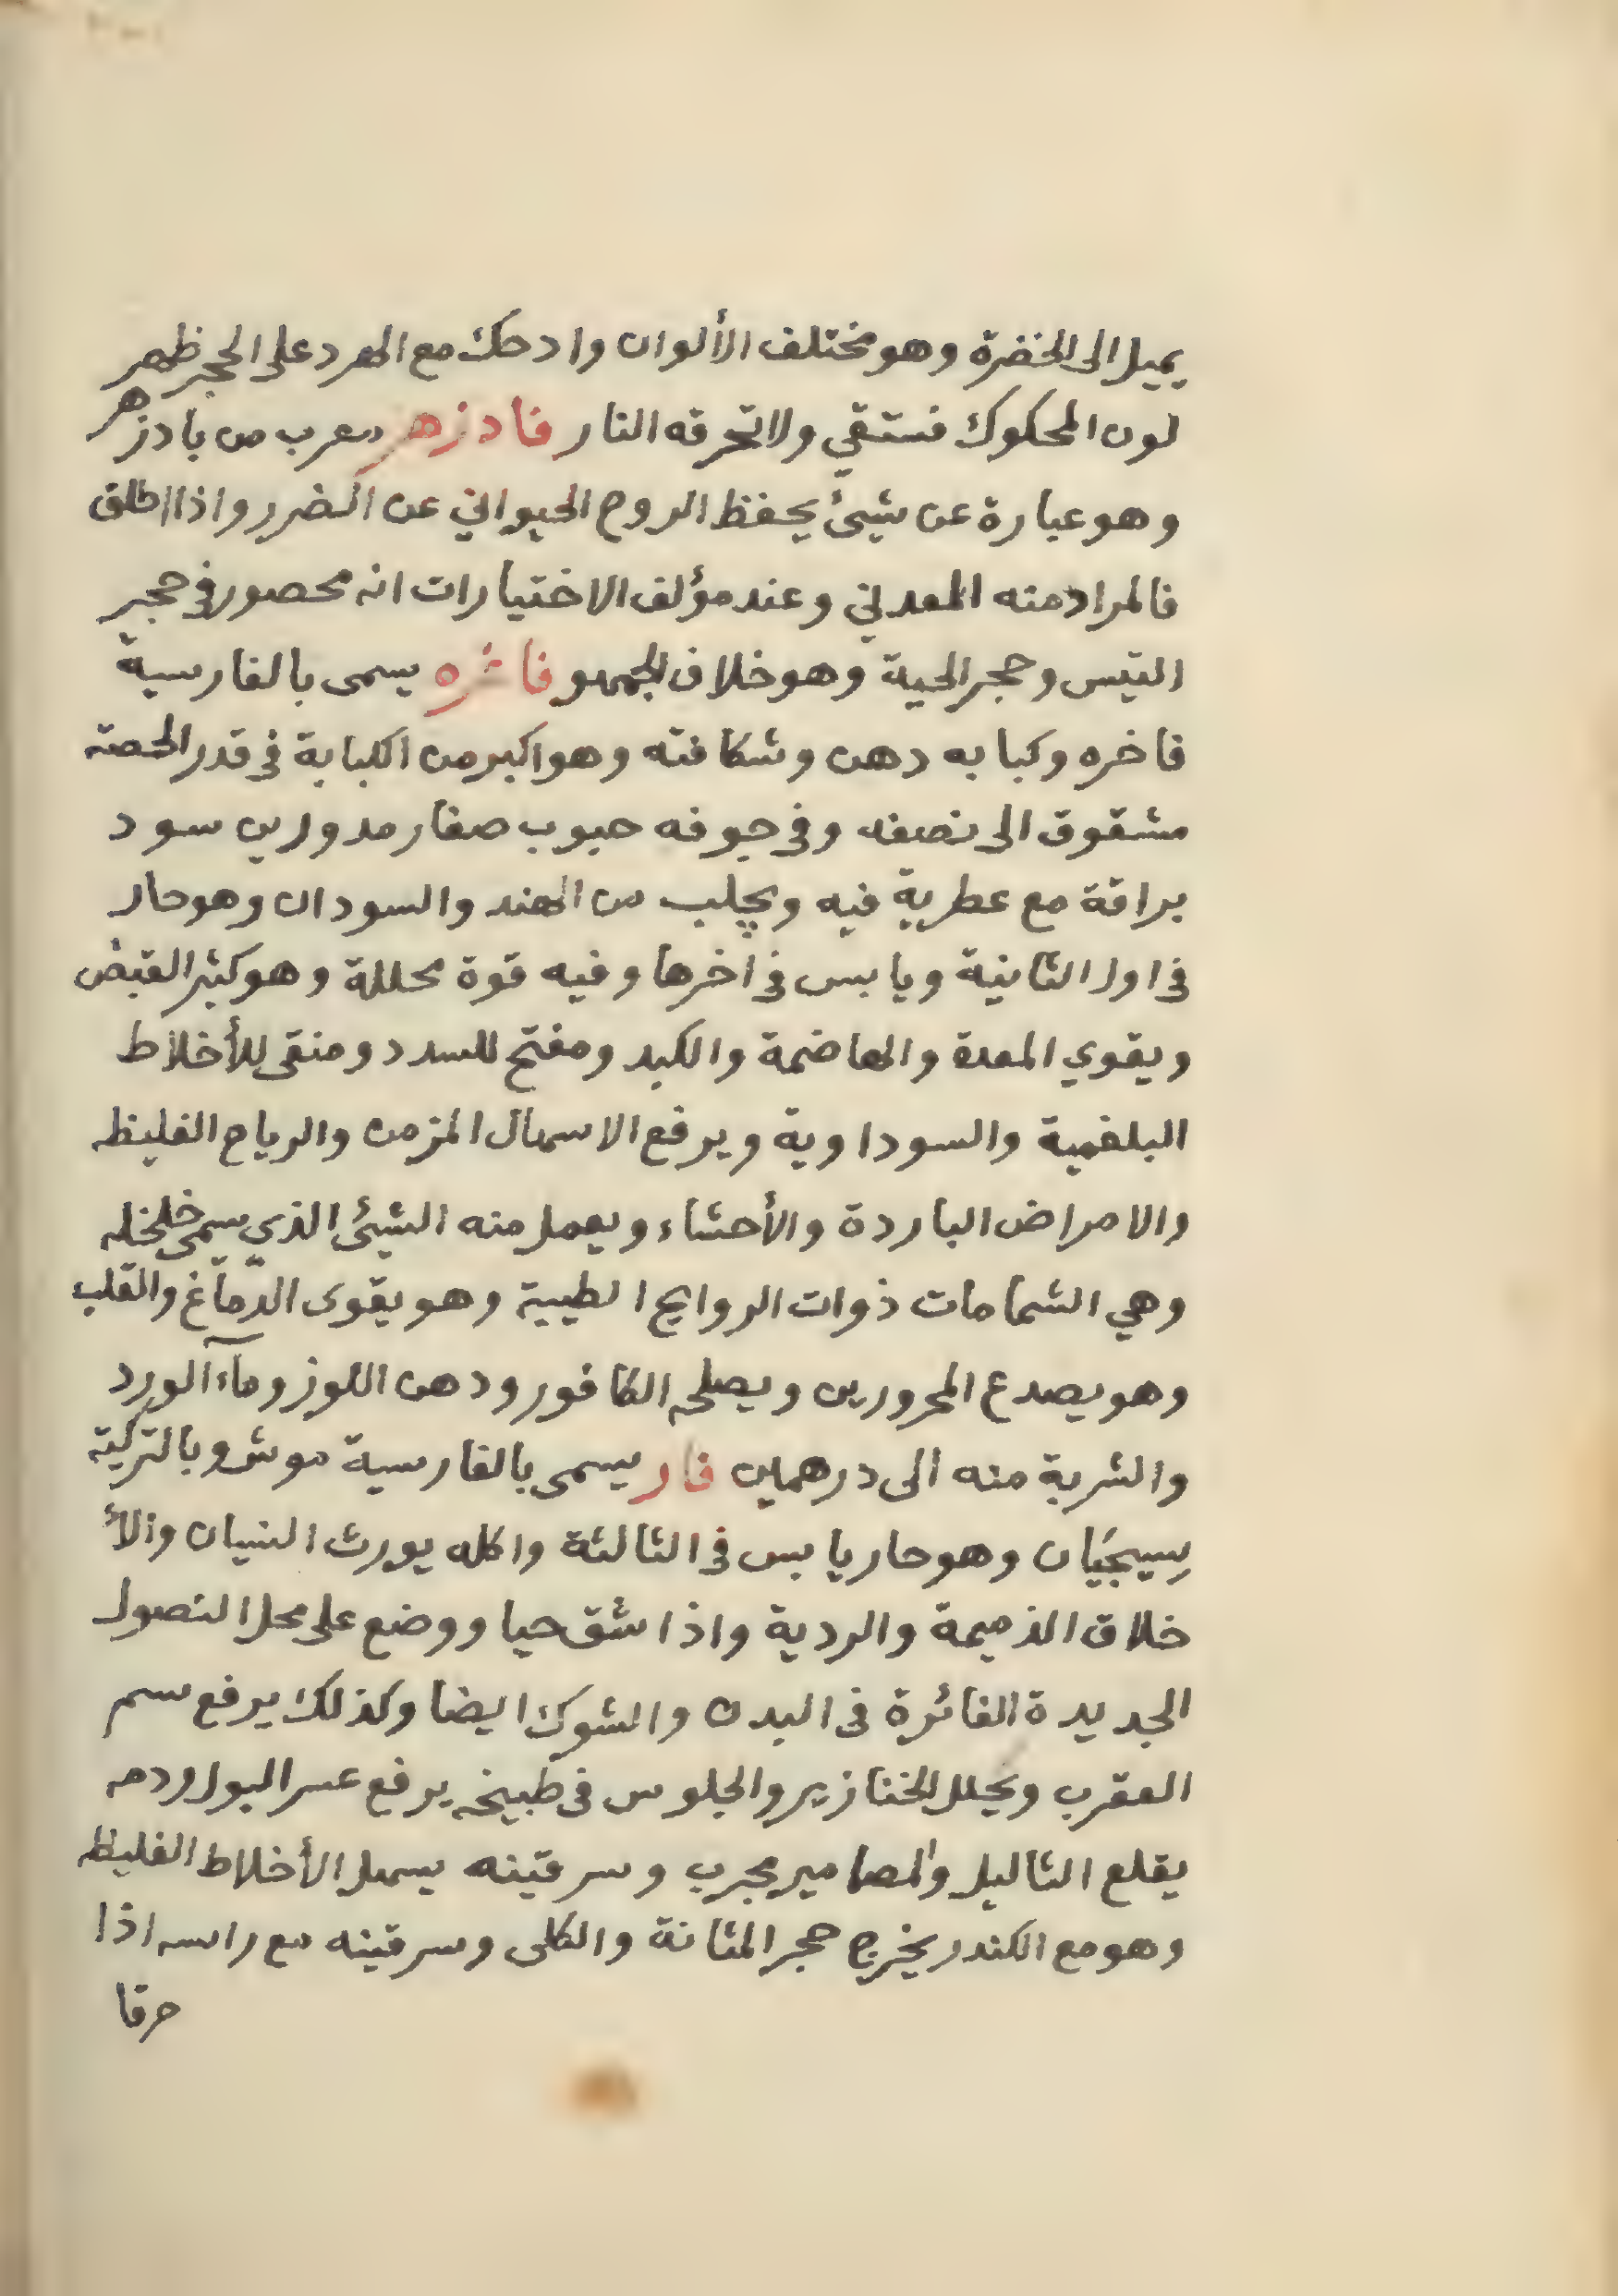 يميل الى الخضرة وهو مختلف الألوان واد حك مع الهرد على الحجر ظهر
لون المحكوك فستقي ولا تحرقه النار فادزهر معرب من بادزهر
وهو عبارة عن شيئ يحفظ الروح الحيواني عن الضرر واذا اطلق
فالمراد منه المعدني وعند مؤلف الاختيارات انه محصور في حجر
التيس وحجر الحية وهو خلاف الجمهو يسمى بالفارسية
فاخره وكبابه دهن وشكافته وهو اكبر من الكبابة في قدر الحصته
مشقوق الى نصفه وفي جوفه حبوب صغار مدورين سود
براقة مع عطرية فيه ويجلب من الهند والسودان وهو حار
في اول الثانية ويابس في اخرها وفيه قوة محللة وهو كثر القبض
ويقوي المعدة والهاضمة والكبد ومفتح للسدد ومنقى للأخلاط
البلغمية والسوداوية ويرفع الاسهال المزمن والرياح الغليظه
والامراض الباردة والأحشاء ويعمل منه الشيئ الذي يسمى خلخله
وهي الشمامات ذوات الروايح الطيبة وهو يقوى الدّماغ والقلب
وهو يصدع المحرورين ويصلحه الكافور ودهن اللوز ومآء الورد
والشربة منه الى درهمين فار يسمى بالفارسية موش وبالتركية
سيجيان وهو حار يابس في الثالثة واكله يورث النسيان والأ
خلاق الذميمة والردية واذا شق حيا ووضع على محل النصول
الجديدة الغائرة في البدن والشوك ايضا وكذلك يرفع سم
العقرب ويحلل الخنازير والجلوس في طبيخه يرفع عسر البول ودمه
يقلع الثاليل والمصامير مجرب وسرقينه يسهل الأخلاط الغليظه
وهو مع الكندر يخرج حجر المثانة والكلى وسرقينه مع راسه اذا
حرقا